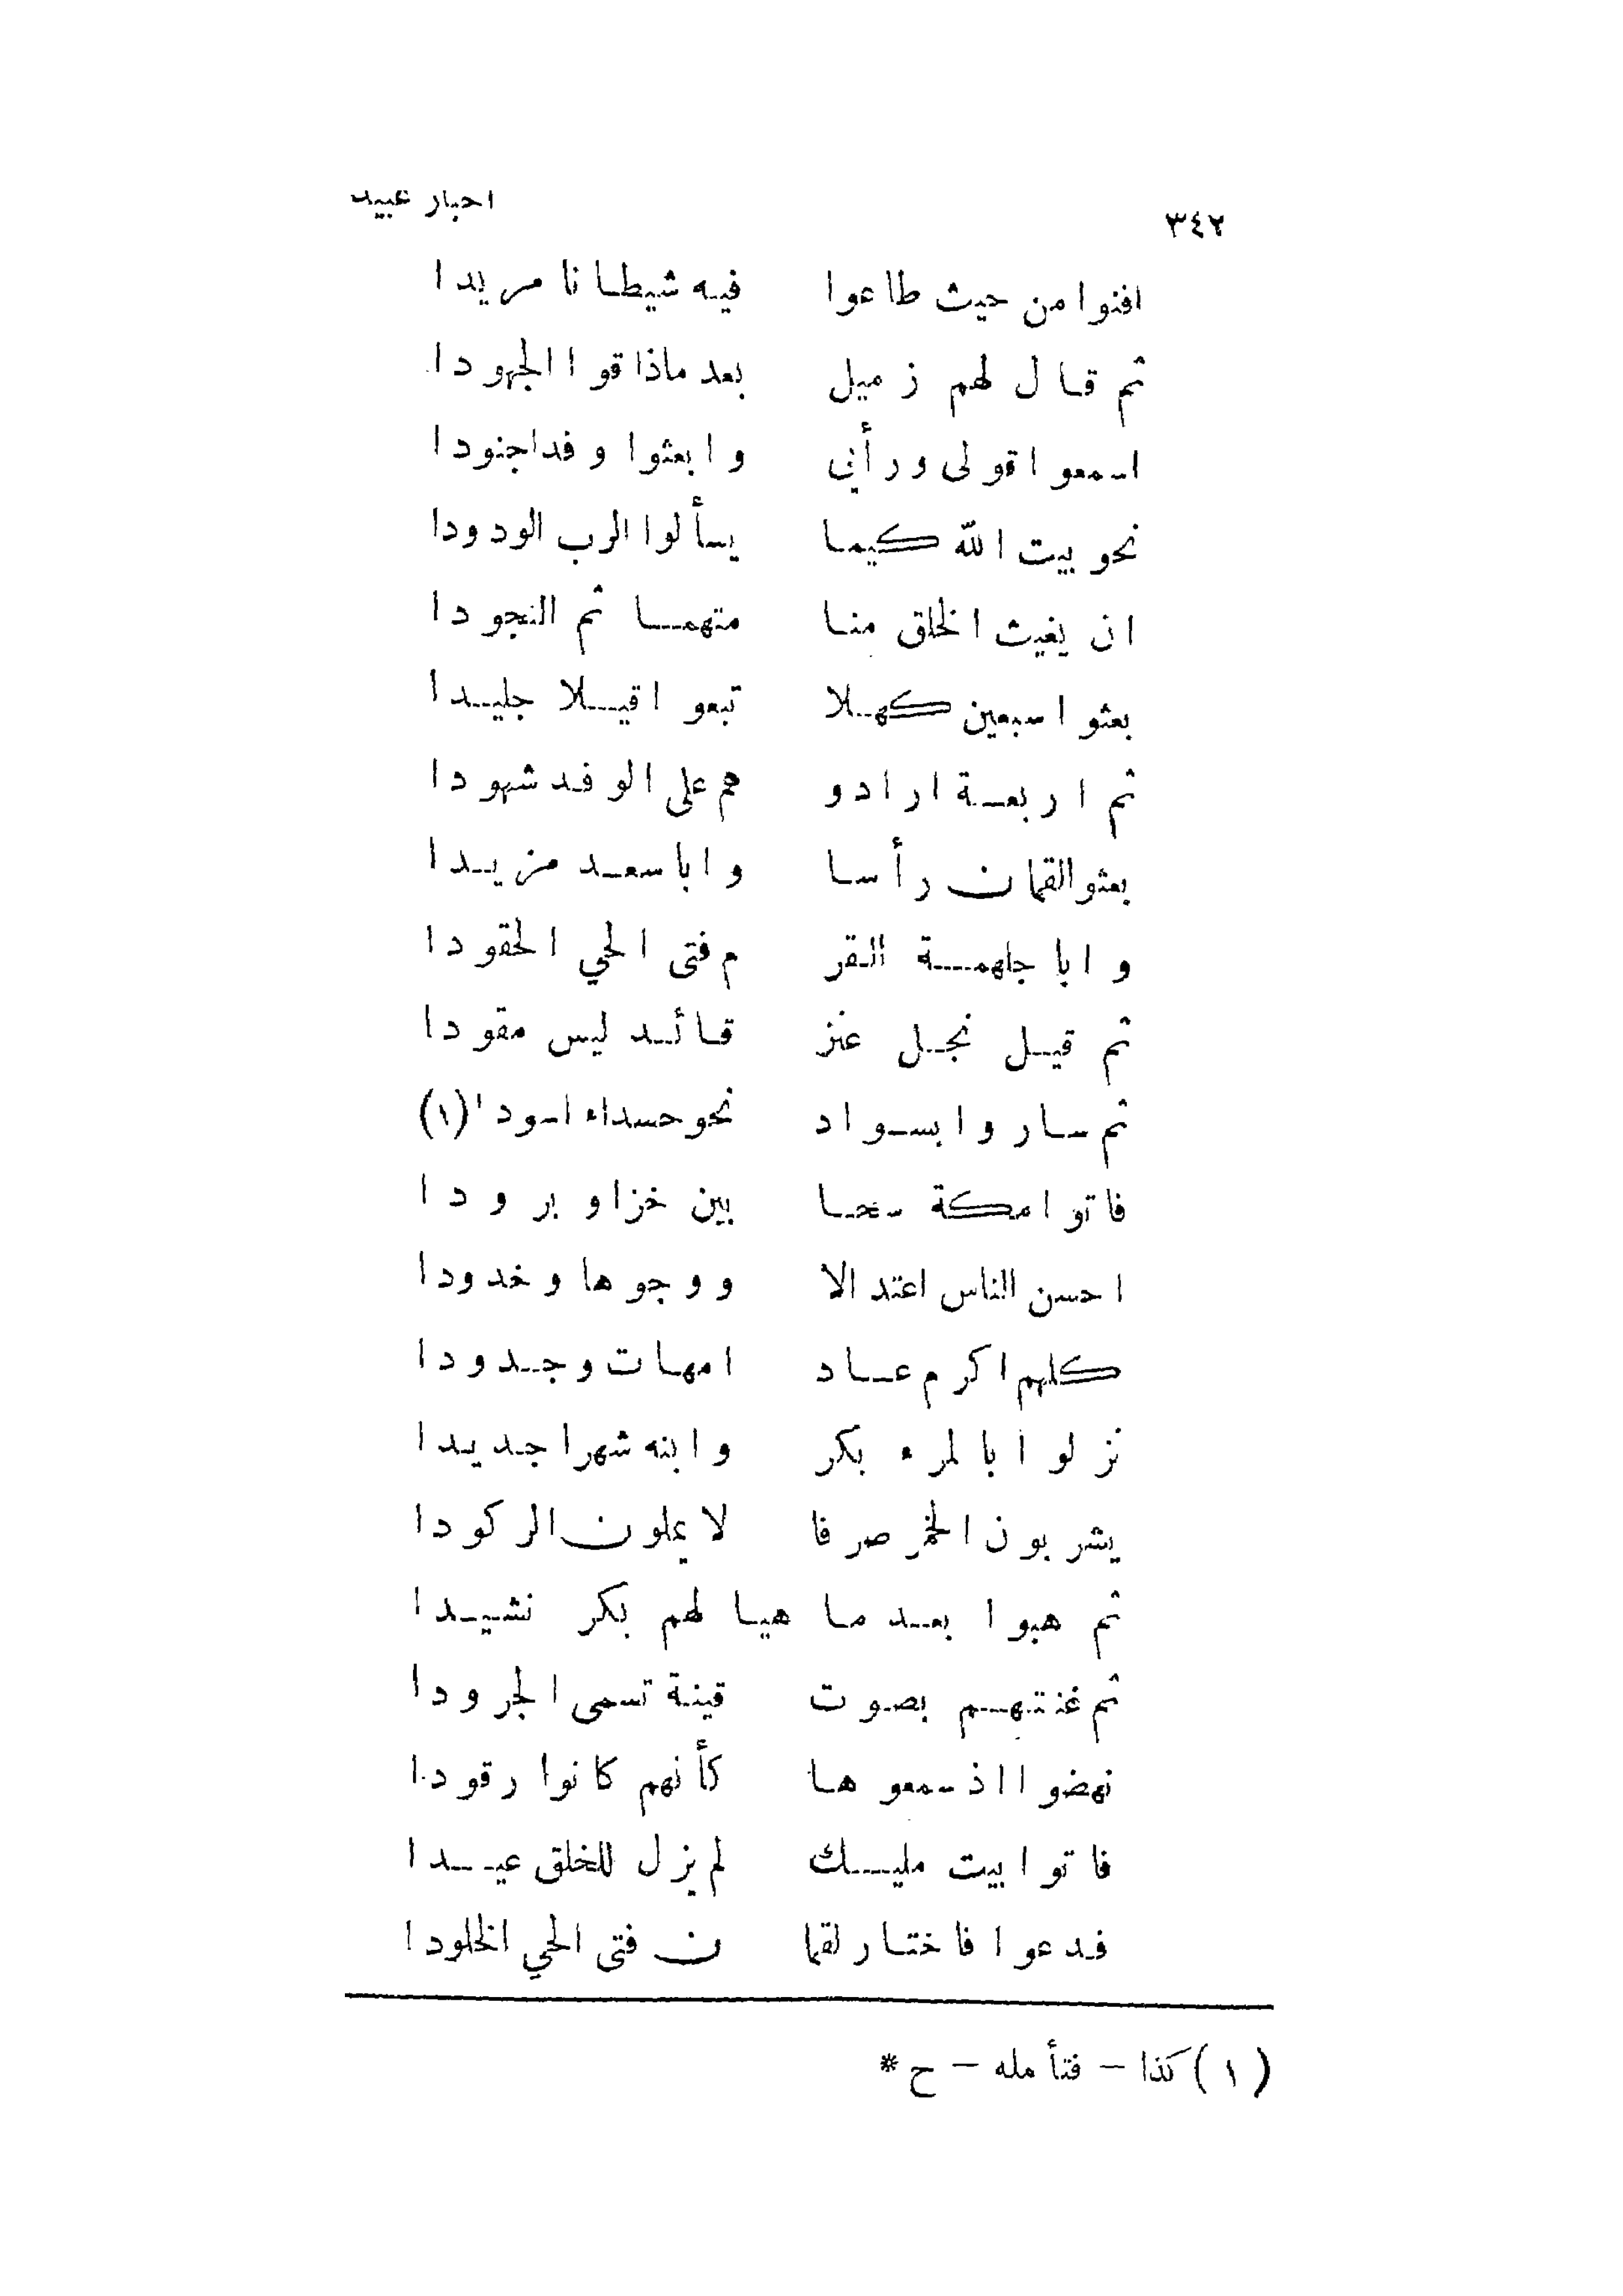 ٣٤٢ اخبار عبيد
افنوا من حيث طاعوا فيه شيطانا مريدا
ثم قال لهم زميل بعد ماذاقوا الجهودا
اسمعوا قولى ورأني وابعثوا وفداجنودا
نحو بيت الله كيما يسألوا الرب الودودا
ان يغيث الخلق منا متهما ثم النجودا
بعثوا سبعين كهلا تبعوا قيلا جليدا
ثم اربعة ارادو هم على الوفد شهودا
بعثوالقمان رأسا وابا سعد مزيدا
وابا جلهمة القر م فتى الحي الحقودا
ثم قيل نجل عنز قائد ليس مقودا
ثم ساروا بسواد نحو حسداء اسودا (١)
فاتوا مكة سحا بين خزا وبرودا
احسن الناس اعتدالا ووجوها وخدودا
كلهم اكرم عاد امهات وجدودا
نزلوا بالمرء بكر وابنه شهرا جديدا
يشربون الخمر صرفا لا يملون الركودا
ثم هبوا بعد ما هيا لهم بكر نشيدا
ثم غنتهم بصوت قينة تسمى الجرودا
نهضوا اذ سمعوها كأنهم كانوا رقودا
فاتوا بيت مليك لم يزل للخلق عيدا
فدعوا فاختار لقما ن فتى الحي الخلودا
(١) كذا – فتأمله – ح *